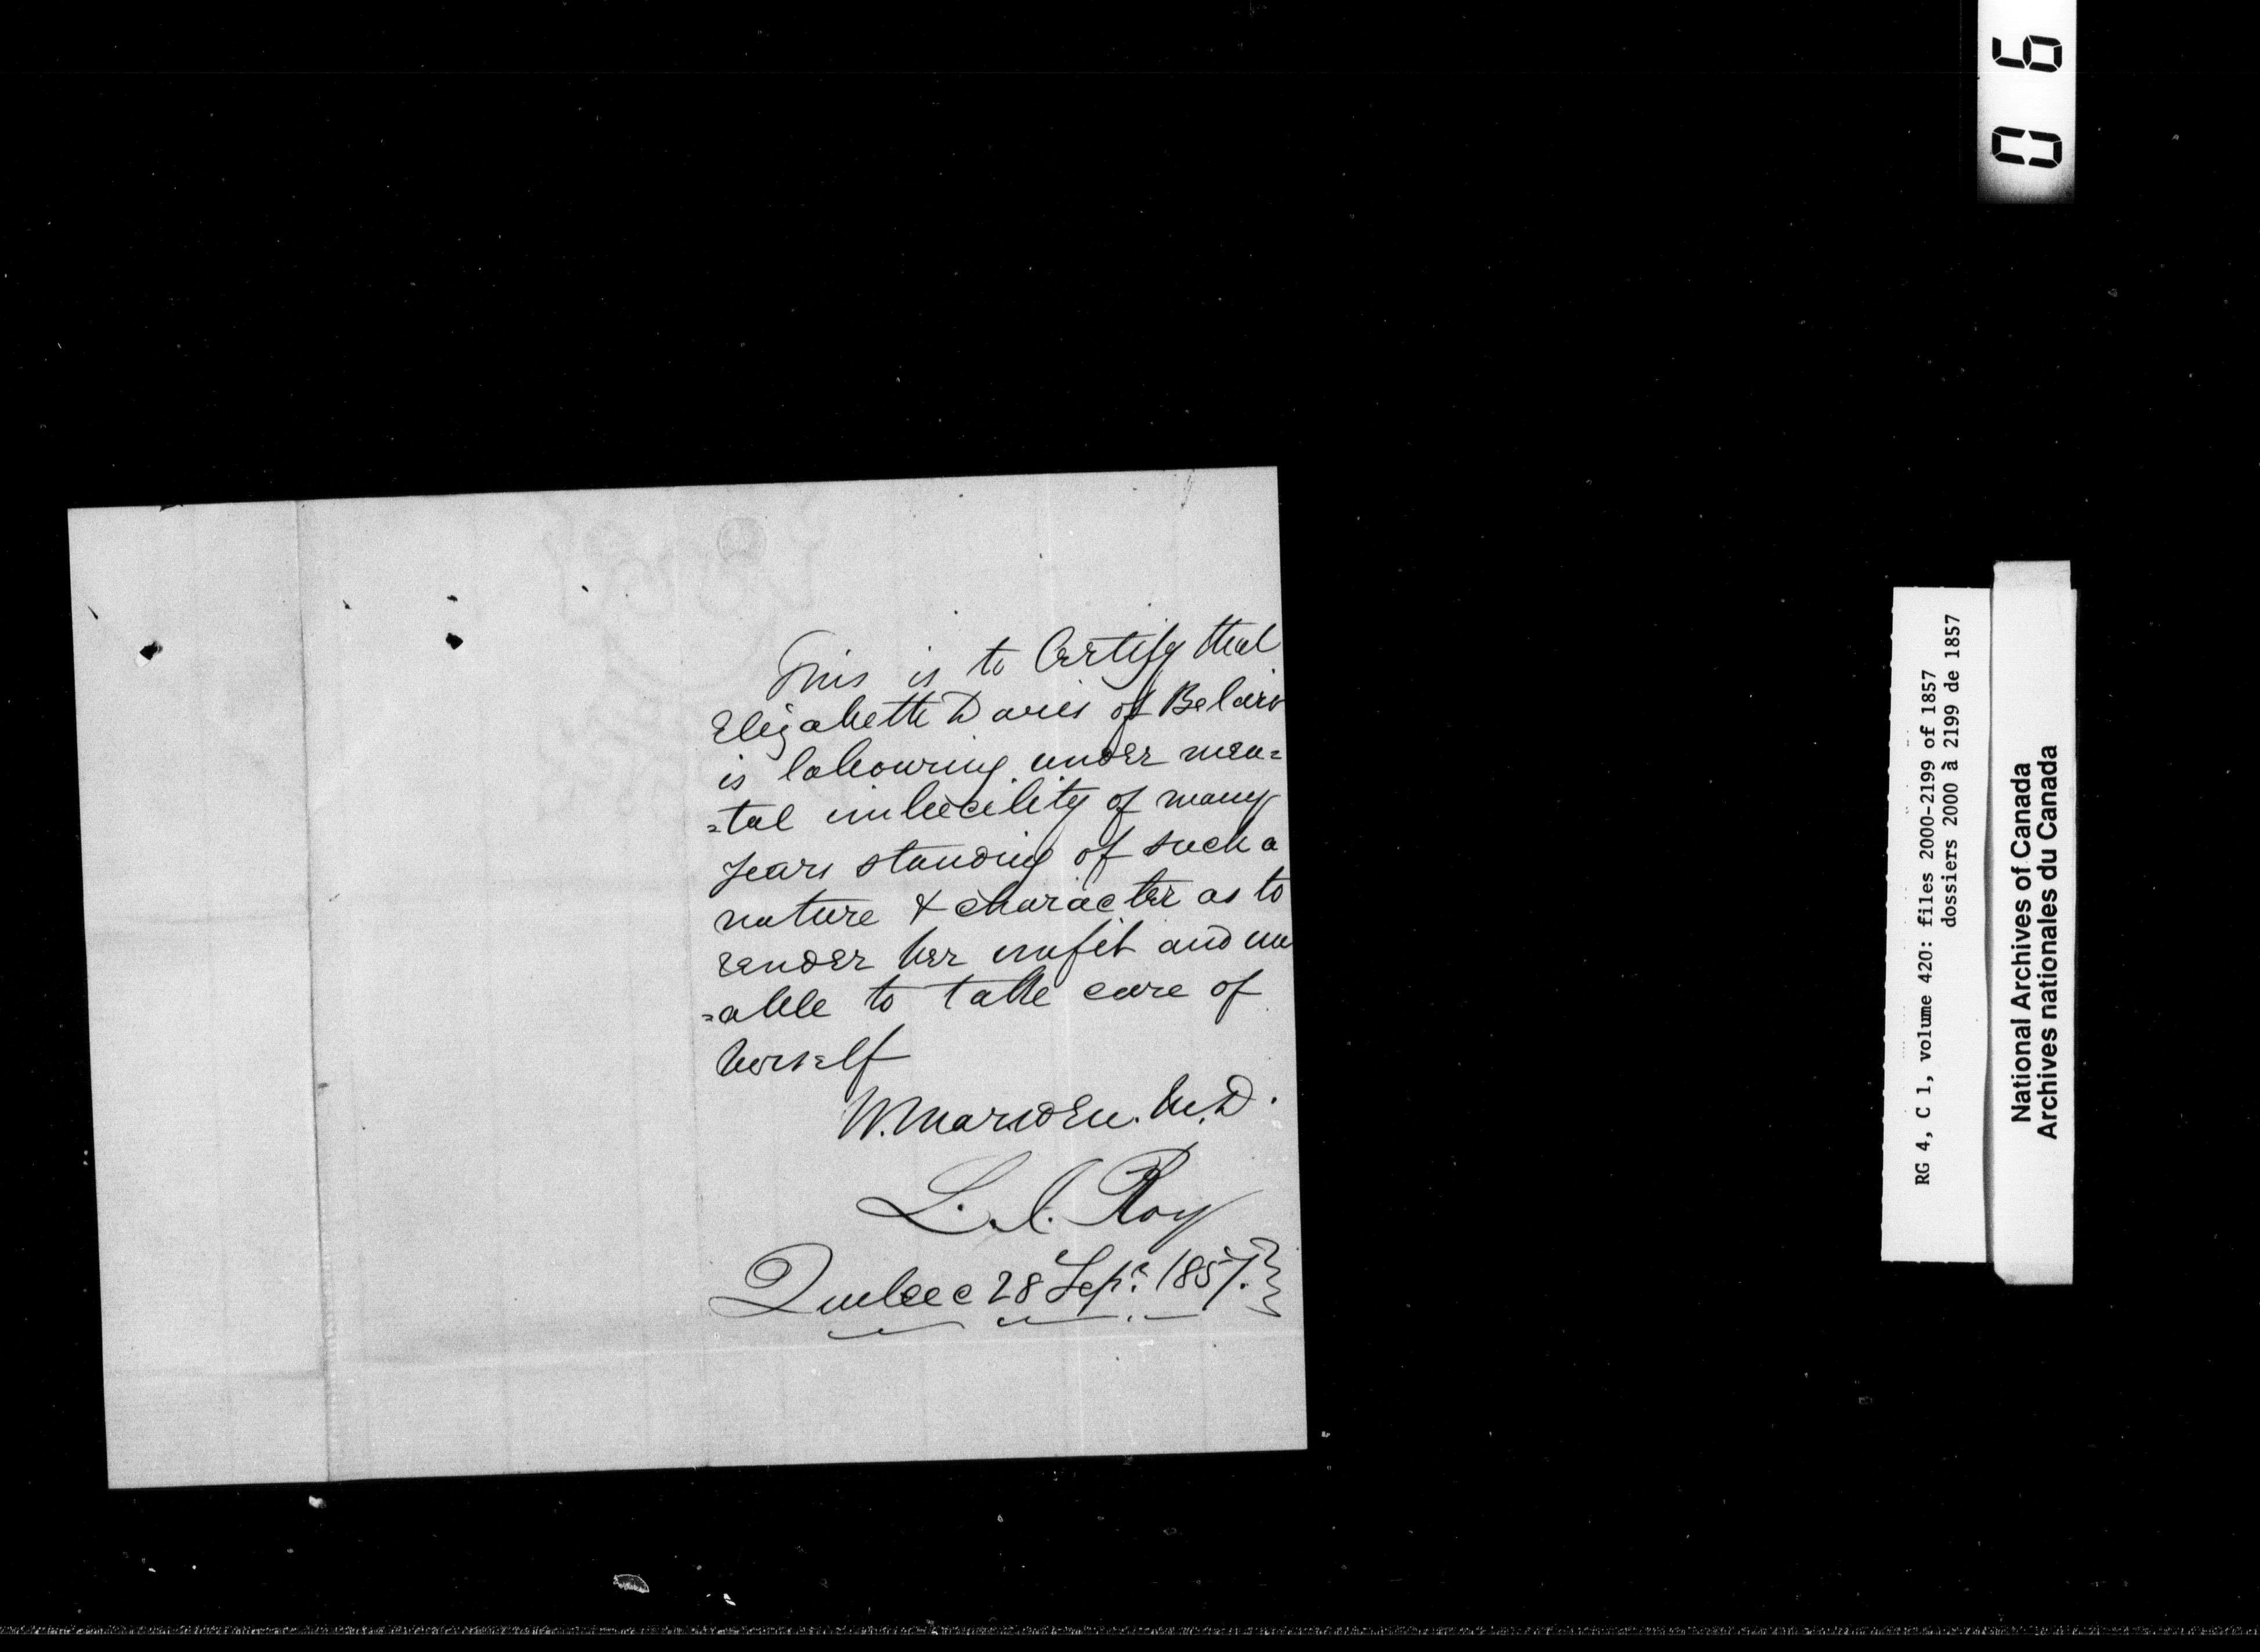 This is to Certify that
Elizabeth Davies of Belair
is labouring under men=
=tal imbecility of many
years standing of such a
nature & character as to
render her unfit and un
=able to take care of
herself
W. Marsden. M.D.
L. J. Roy
Quebec 28 Sepr. 1857.
06
RG 4, C 1, volume 420: files 2000-2199 of 1857
dossiers 2000 à 2199 de 1857
National Archives of Canada
Archives nationales du Canada